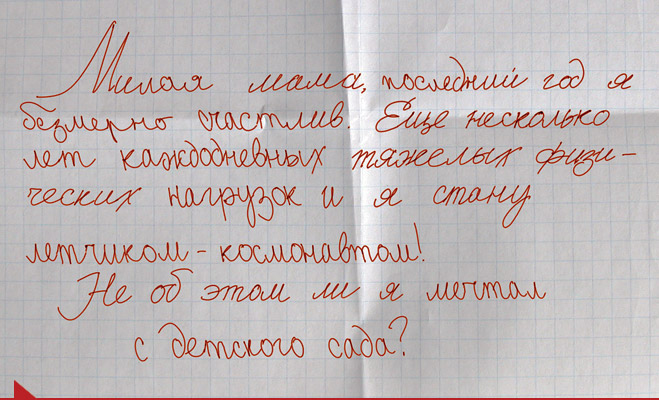 Милая мама, последний год я
безмерно счастлив. Еще несколько
лет каждодневных тяжелых физи-
ческих нагрузок и я стану
летчиком-космонавтом!
Не об этом ли я мечтал
с детского сада?